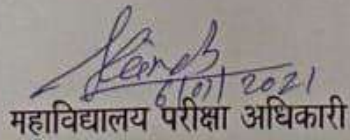 6/01/2021
महाविद्यालय परीक्षा अधिकारी